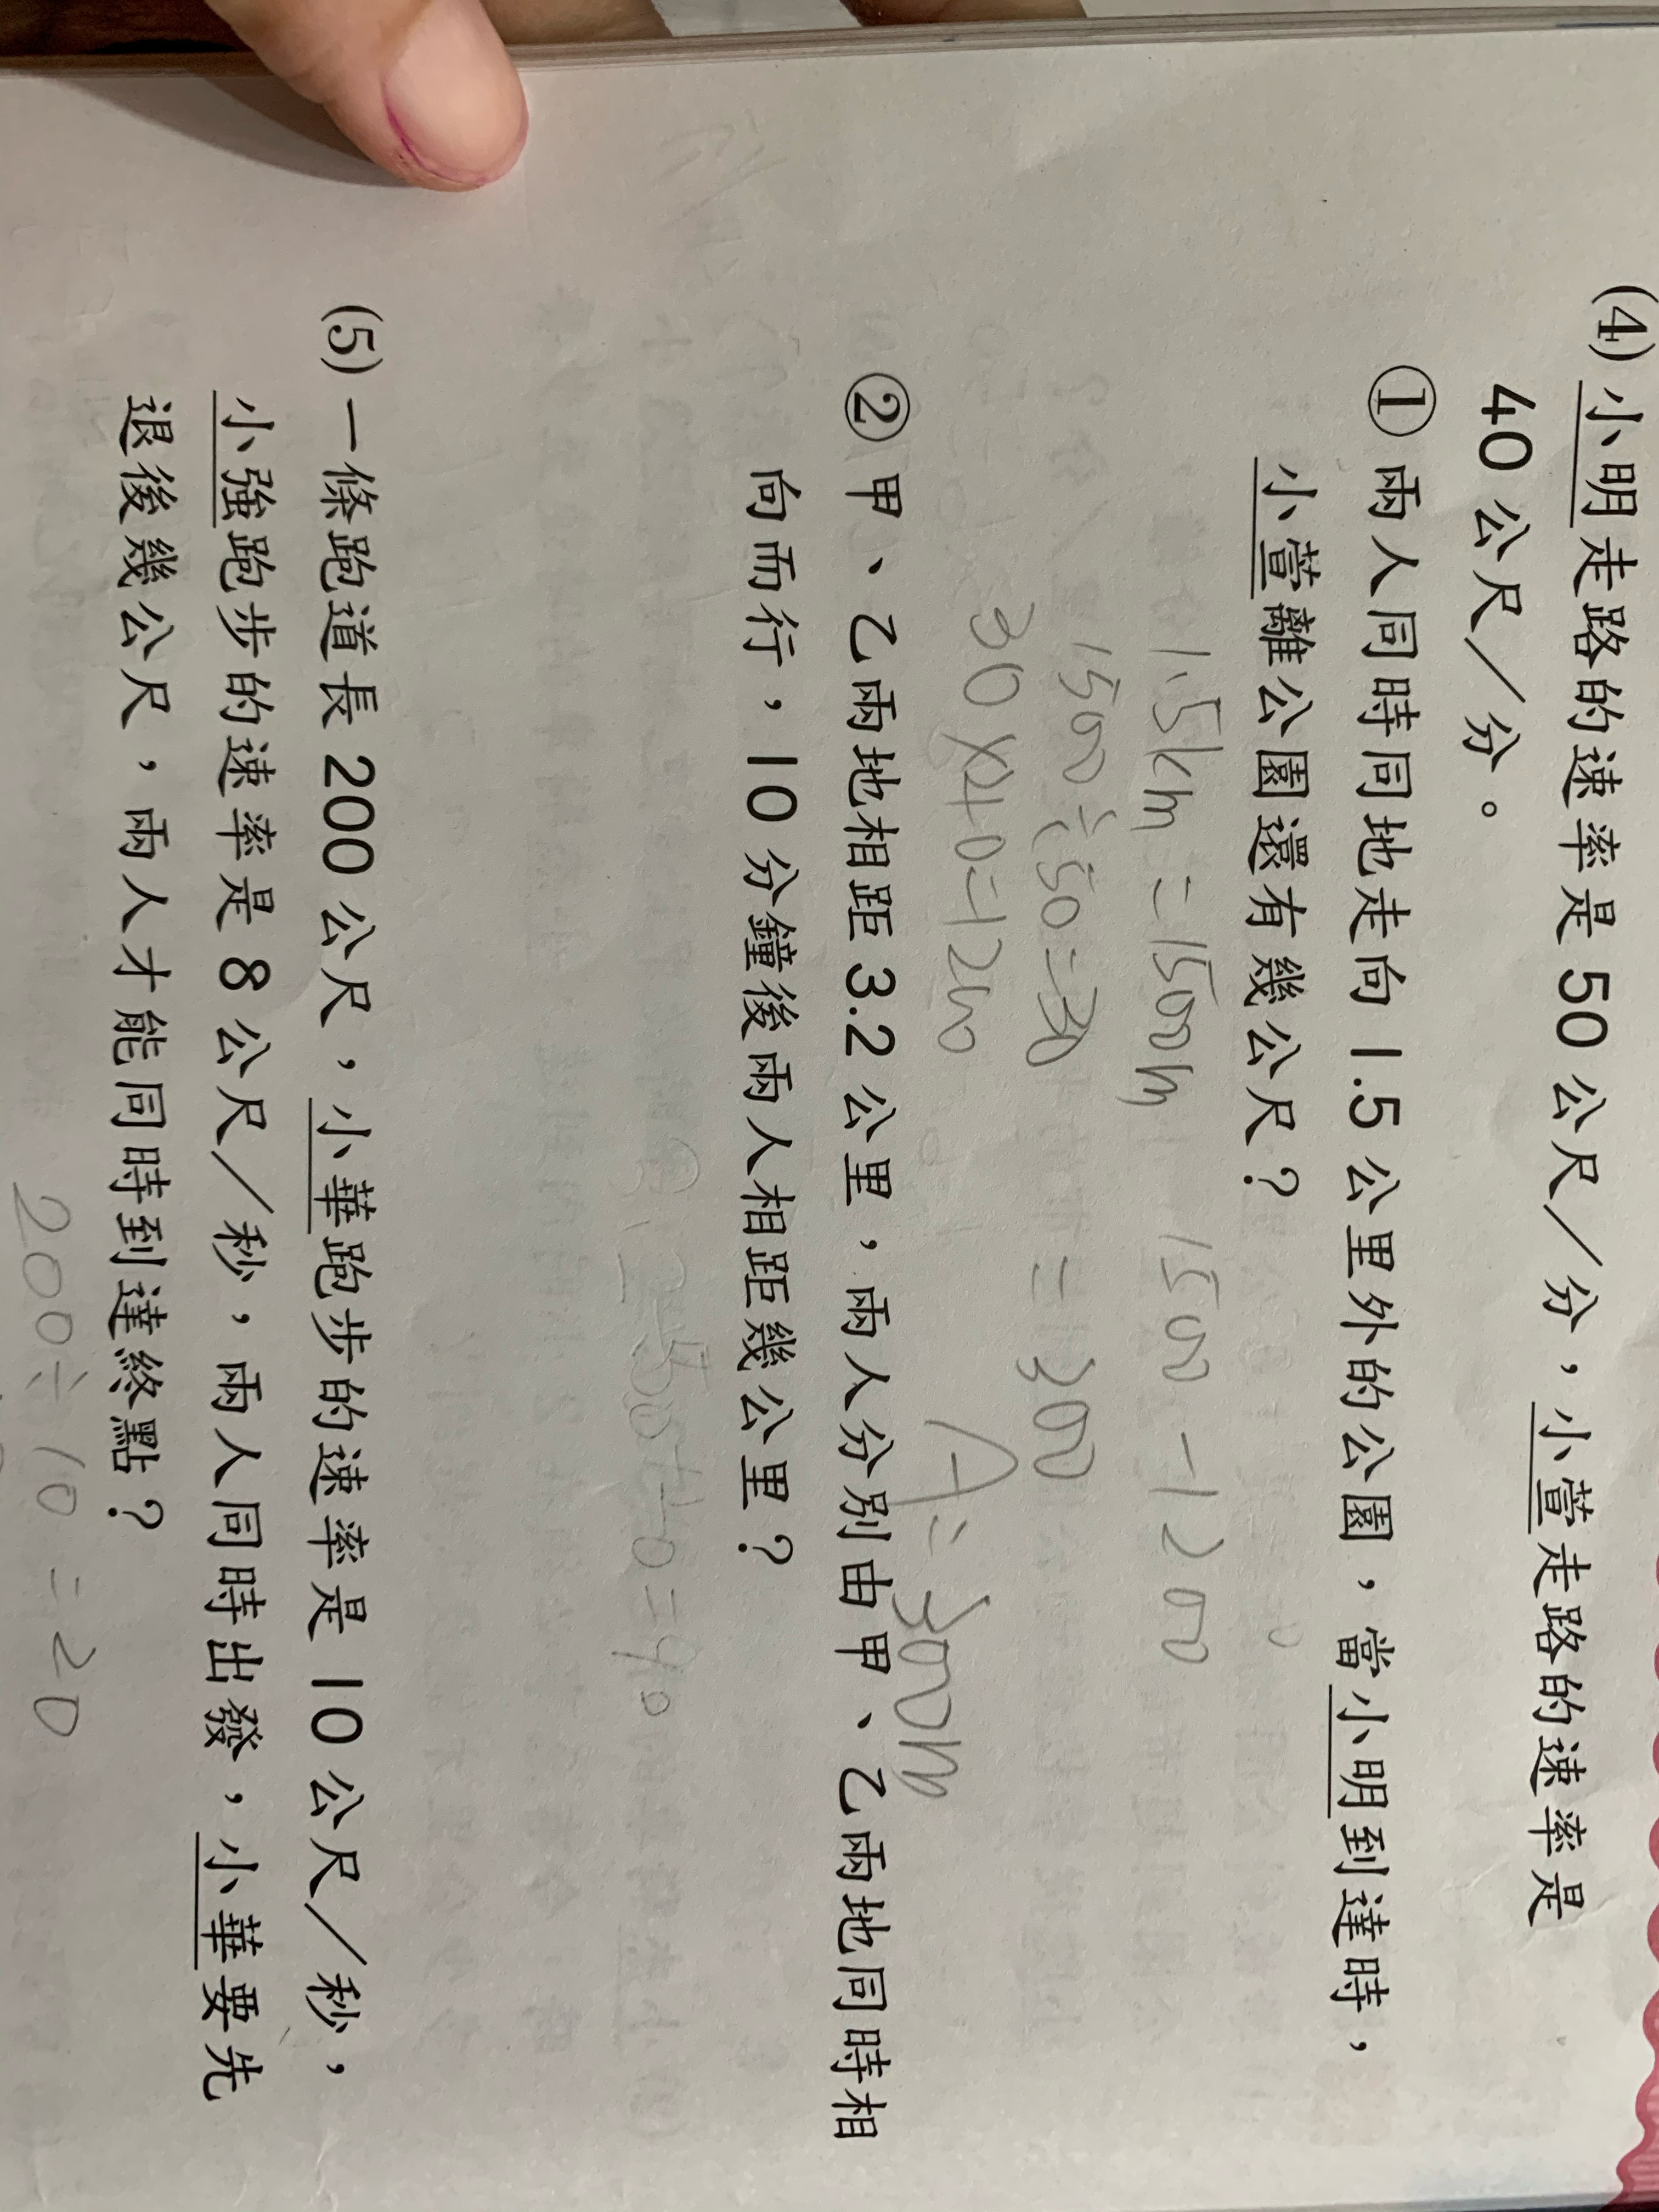 (4) 小明走路的速率是 50 公尺／分，小萱走路的速率是
40 公尺／分。
① 兩人同時同地走向 1.5 公里外的公園，當小明到達時，
小萱離公園還有幾公尺？
1.5km = 1500m 1500 - 1200
1500÷50=30 = 300
30×40=1200 A= 300m
② 甲、乙兩地相距 3.2 公里，兩人分別由甲、乙兩地同時相
向而行，10 分鐘後兩人相距幾公里？
(5) 一條跑道長 200 公尺，小華跑步的速率是 10 公尺／秒，
小強跑步的速率是 8 公尺／秒，兩人同時出發，小華要先
退後幾公尺，兩人才能同時到達終點？
200÷10=20